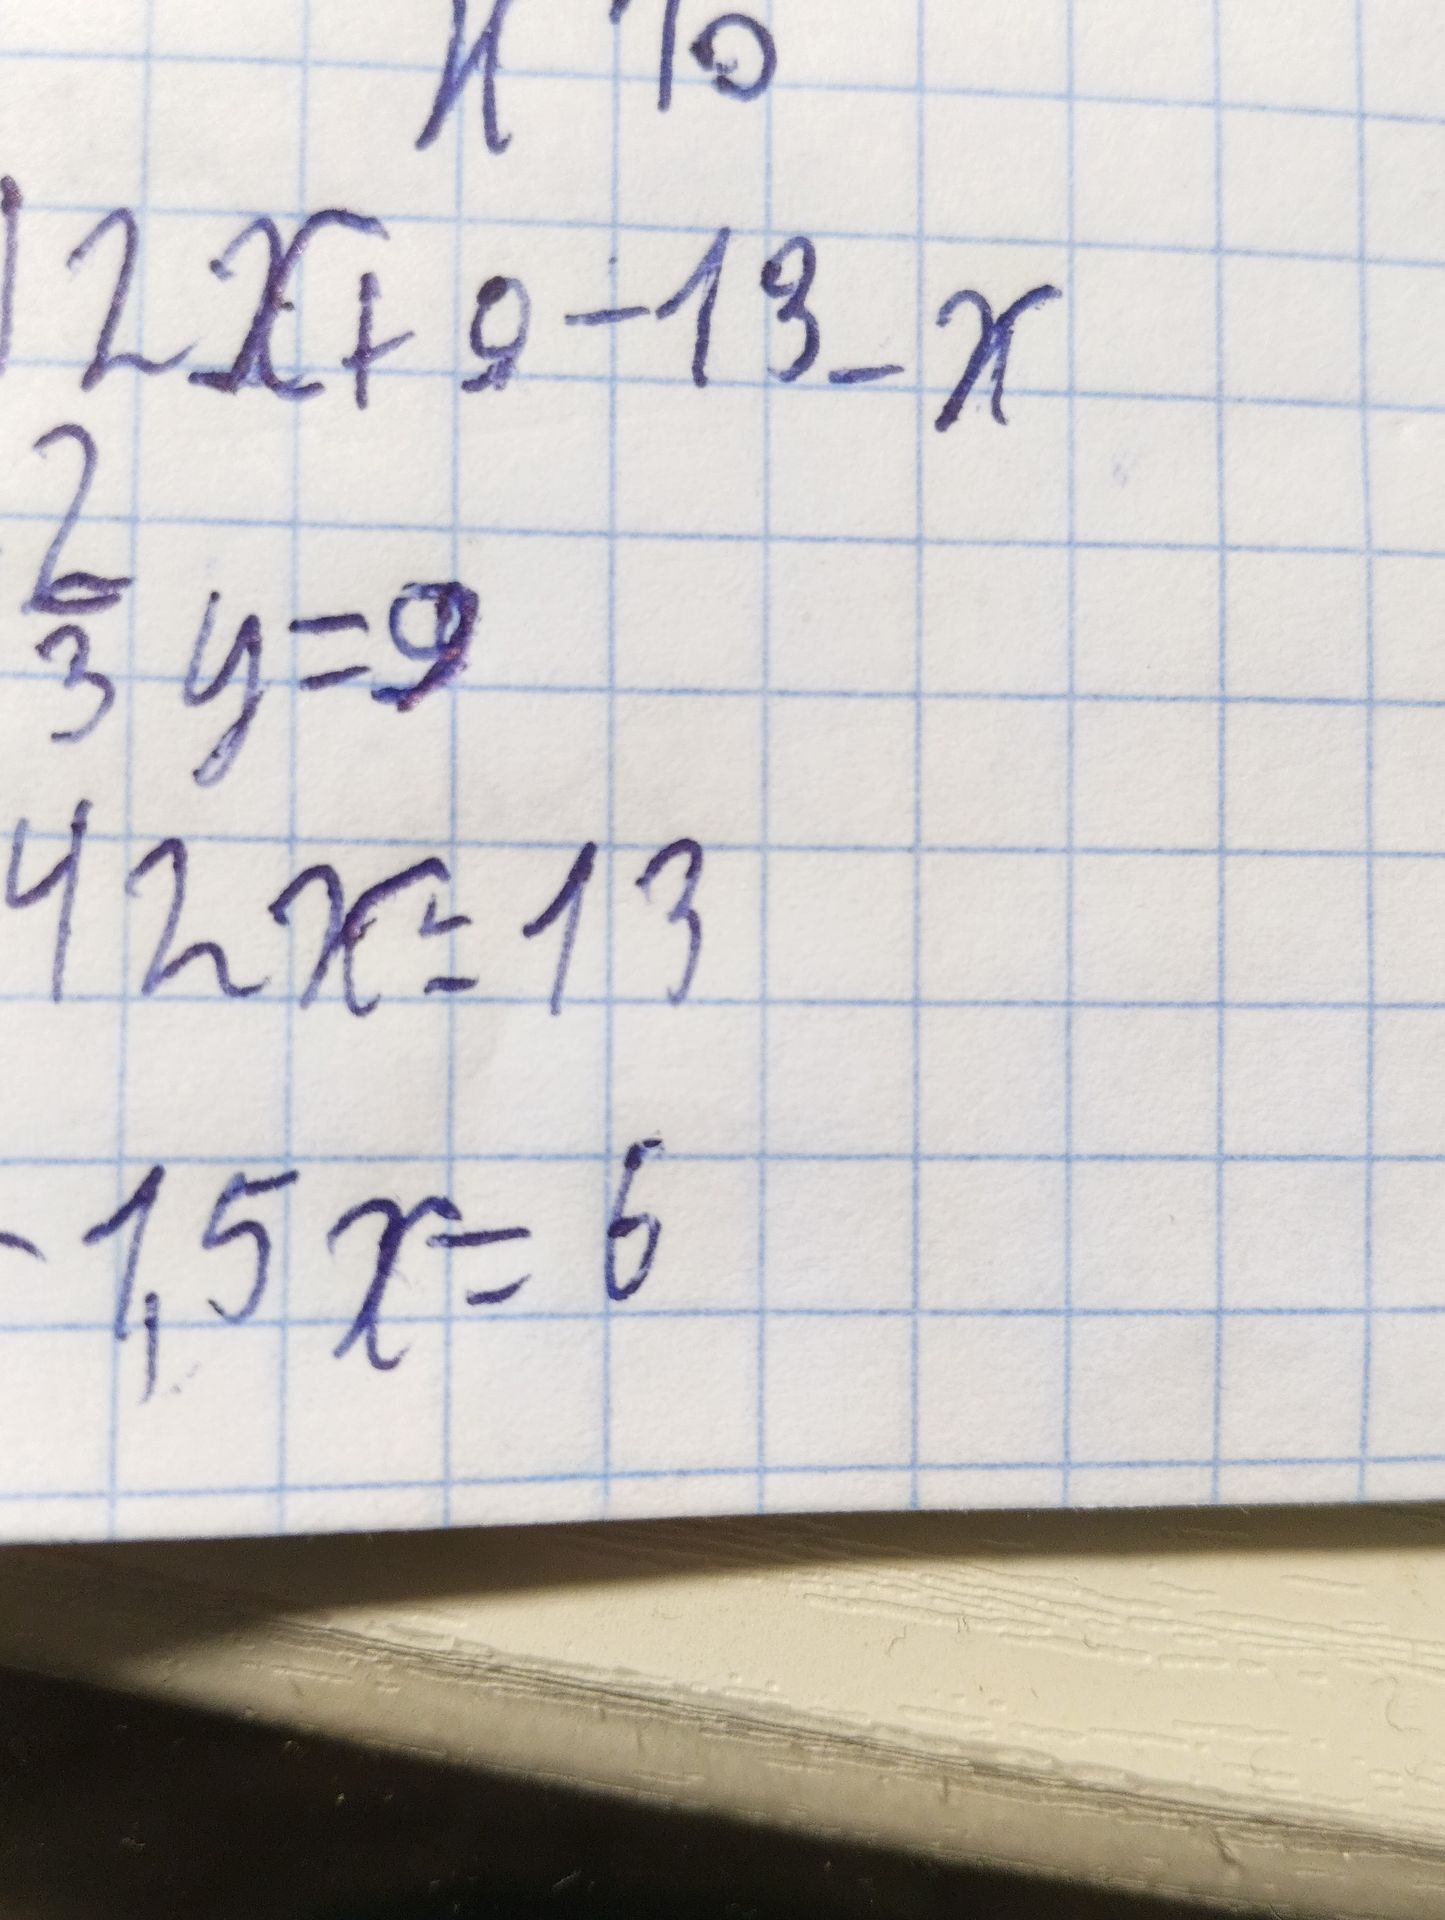 12x+9-13-x
2/3 y=9
42x=13
-1,5x=6